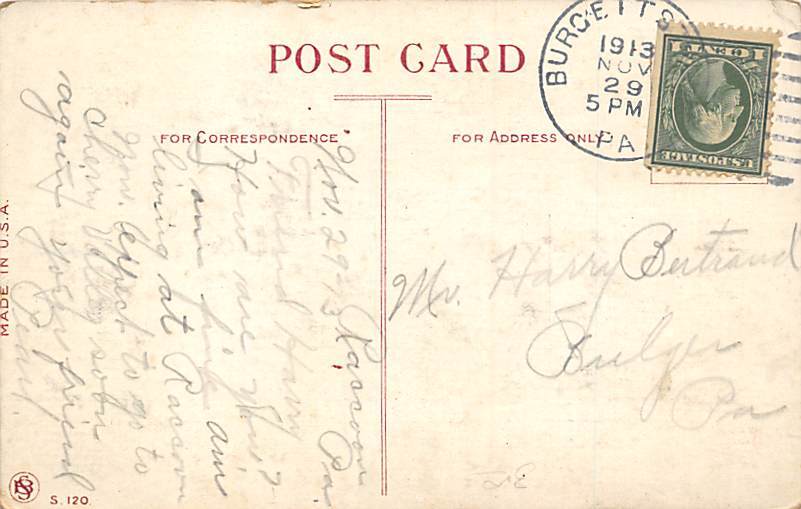 POST CARD
FOR CORRESPONDENCE
FOR ADDRESS ONLY
BURGETTS
1913
NOV
29
5 PM
PA
1 CENT 1
U.S. POSTAGE
Raccoon Pa
Nov. 29-13
Friend Harry
How are you?
I am fine am
living at Raccoon
Now. expect to go to
Cherry Valley soon
again your friend
Mr. Harry Bertrand
Bulger
Pa
MADE IN U.S.A.
S. 120